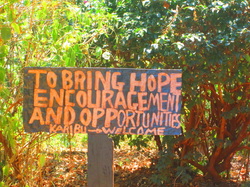 TO BRING HOPE
ENCOURAGEMENT
AND OPPORTUNITIES
KARIBU - WELCOME